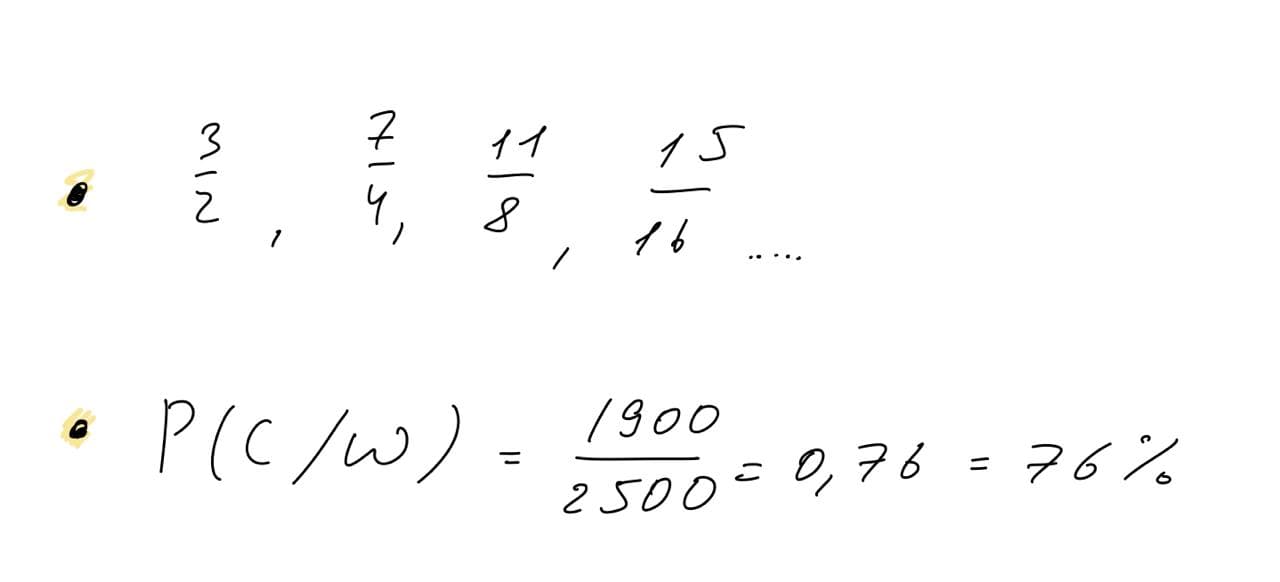 • 3/2, 7/4, 11/8, 15/16 .....
• P(C/W) = 1900/2500 = 0,76 = 76%